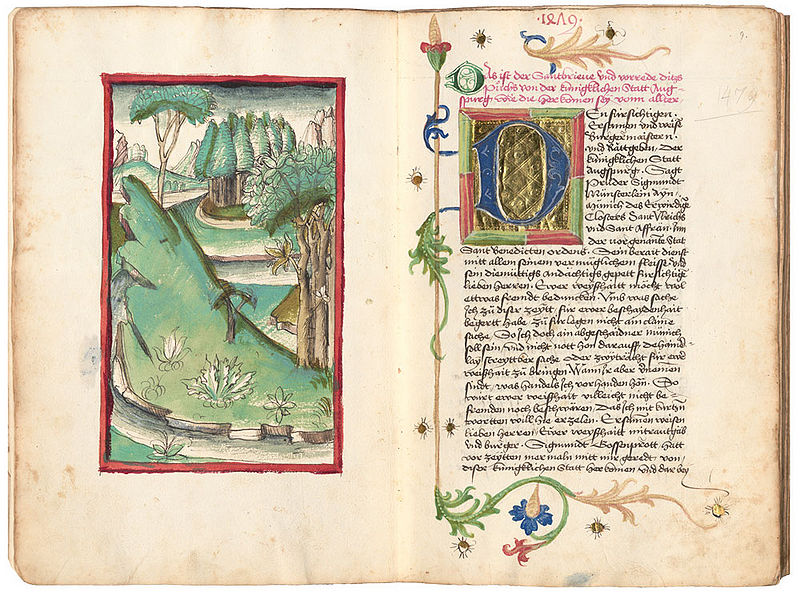 ·1479·
9.
Das ist der Santbrieue vnd vorrede ditz
Puchs von der künigklichen Statt Aug-
spurg wie die her komen sey vonn allter
1479
DEn fürsichtigen.
Ersamen vnd weise
burgermaistern.
vnd Rättgeben. Der
künigklichen Statt
Augspurg. Sagt
Pruder Sigmundt
Münsterlein Ayn
Münich des Erwirdigē
Closters Sant Vlrichs
vnd Sant Affran. Jnn
der vorgenante Stat
Sant Benedicten ordens. Sein berait dienst
mit allem seinem vermüglichem fleiss vnd
sein diemüttigs andächtigs gepett fürsichtige
lieben herren. Ewer weyßhait möcht
ettwas fremdt beduncken. Vmb was sache
Jch zů diser zeytt. für ewer beschaydenhait
begertt habe zů für legen nicht ain claine
sache. So ich doch ain abgeschaidner münich
soll sein. vnd nicht nott hon darauss
sache. Oder zwytrácht für ewr
weißhait zů bringen Wann ir aber
sindt. was handels Jch vorhanden hon. So
wirt ewer weißhait villeicht nicht be-
fremden noch beschwären. Das Jch mit kurtzn
wortten will hie erzelen. Ersamen weisen
lieben herren. Ewer weyßhaitt mitratgäb
vnd burger. Sigmundt Gossenprott hatt
vor zeytten mer maln mitt mir geredt. von
diser künigklichen Statt her komen vnd dar bey